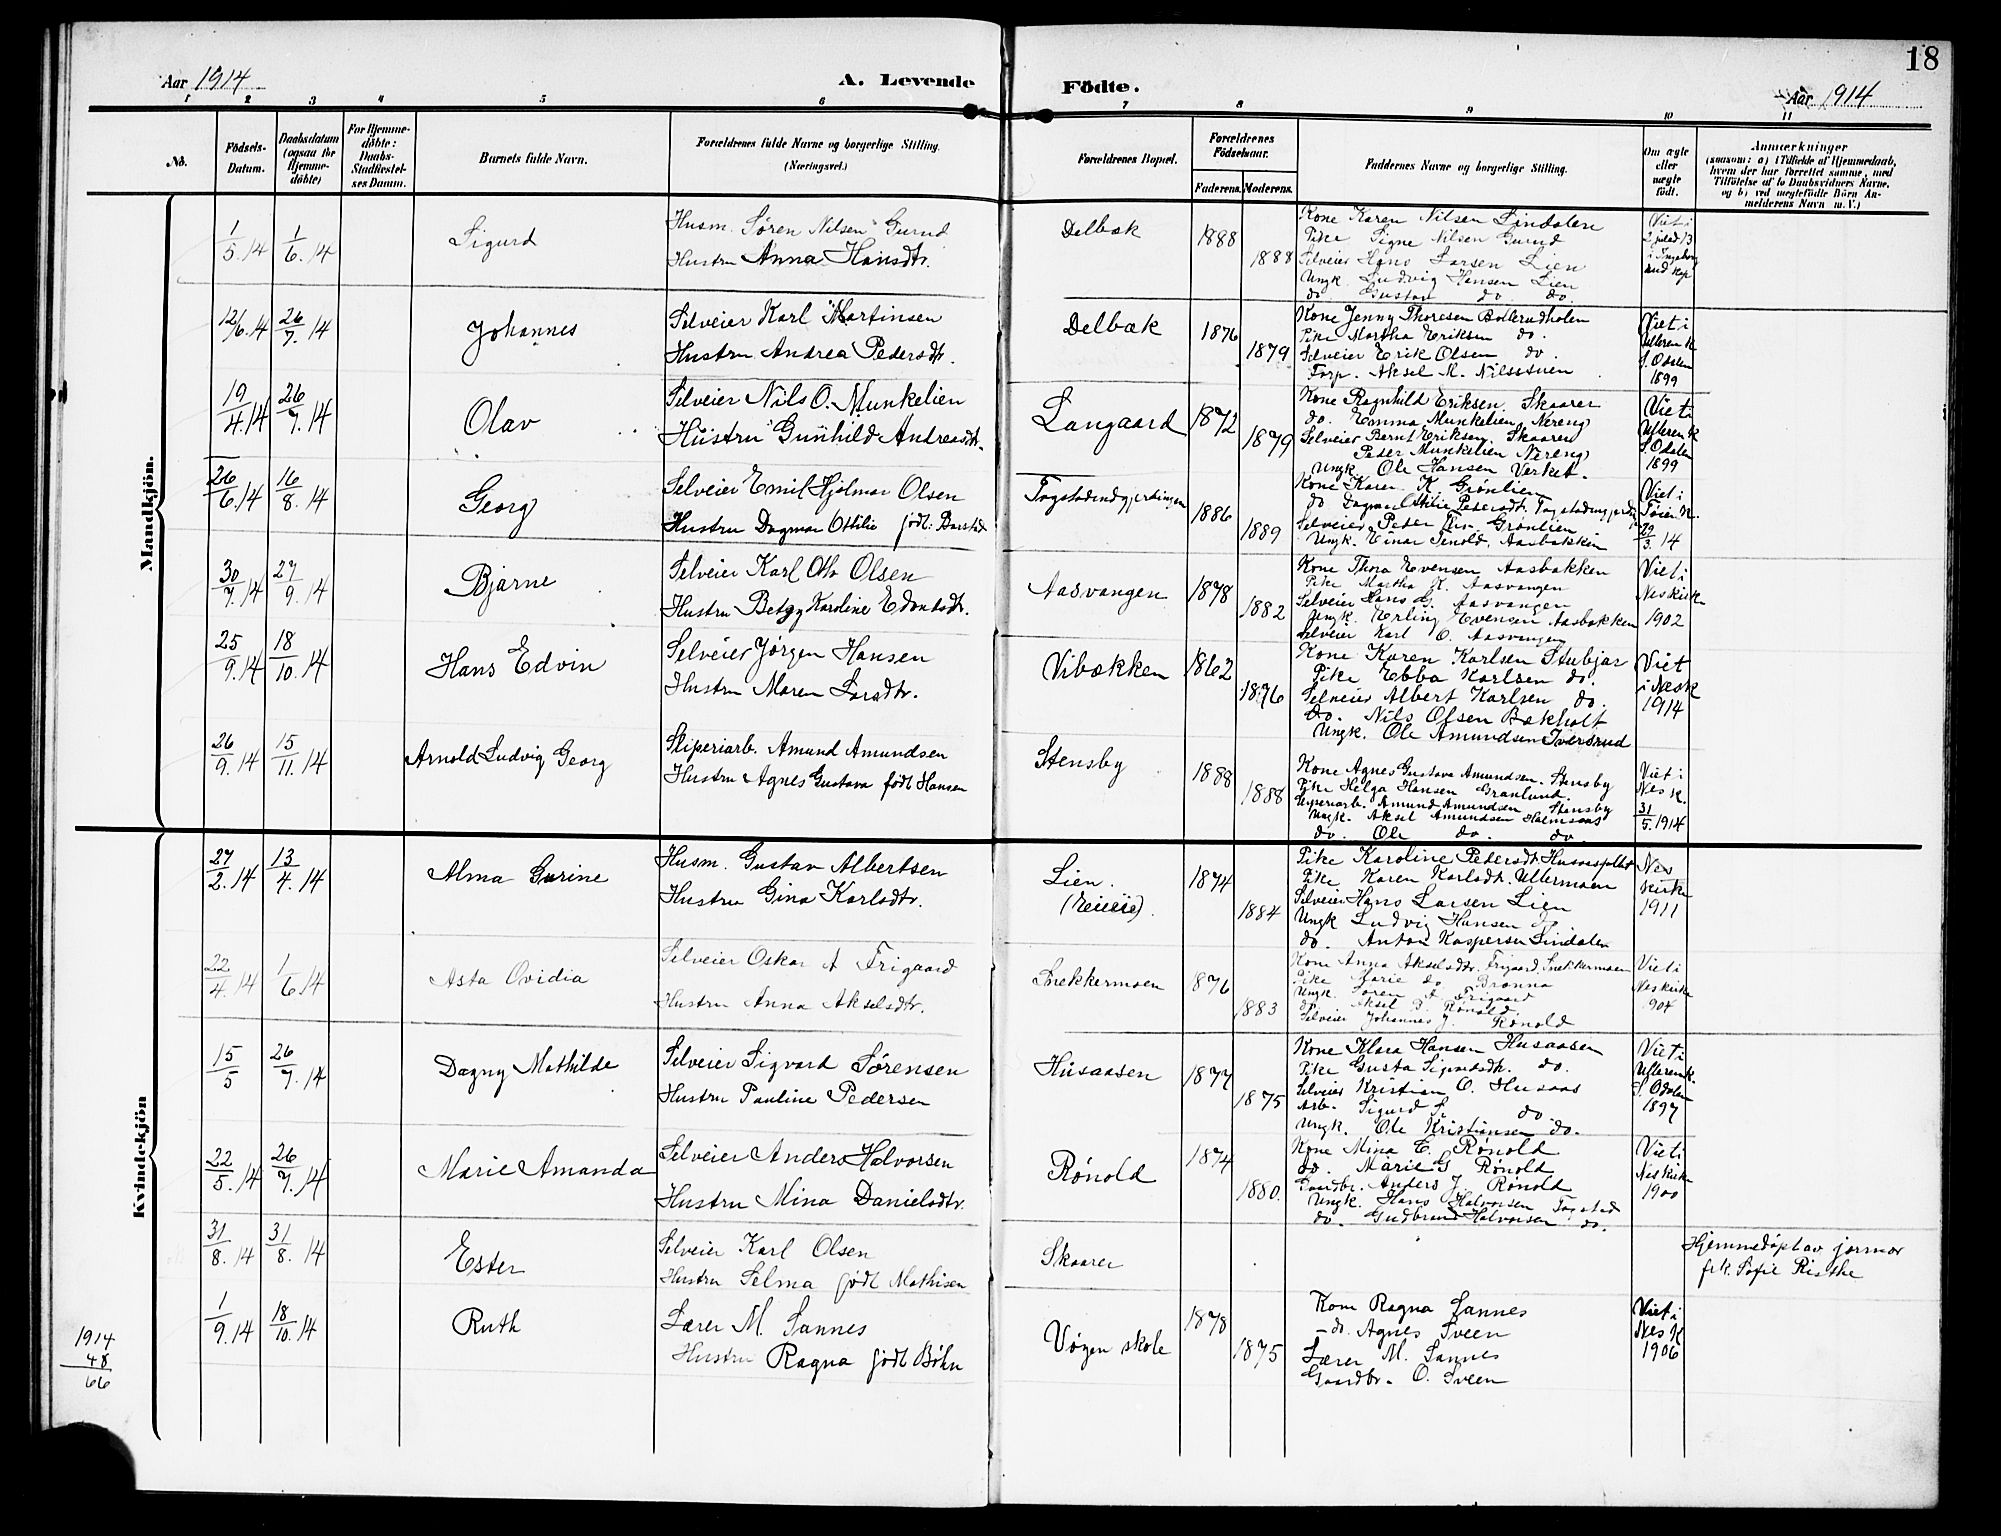 18
Aar 1914
A. Levende Födte.
Aar 1914
1 2 3 4 5 6 7 8 9 10 11
No.
Födsels-Datum.
Daabsdatum (ogsaa for Hjemme-döbte)
For Hjemme-döbte: Daabs-Stadfæstel-ses Datum.
Barnets fulde Navn.
Forældrenes fulde Navne og borgerlige Stilling. (Næringsvei.)
Forældrenes Bopæl.
Forældrenes Födselsaar.
Faderens. Moderens.
Faddernes Navne og borgerlige Stilling.
Om ægte eller uægte födt.
Anmærkninger
(saasom: a) i Tilfælde af Hjemmedaab, hvem der har forrettet samme, med Tilföielse af to Daabsvidners Navne, og b) ved uægtefödte Börn An-melderens Navn m. V.)
Mandkjön.
1/5.14 1/6.14 Sigurd
Husm. Søren Nilsen Gurud
Hustru Anna Hansdtr.
Delbæk 1888 1888
Kone Karen Nilsen Lindalen
Pike Signe Nilsen Gurud
Selveier Hans Larsen Lien
Ungk. Ludvig Hansen Lien
do. Gustav do. do.
Viet i
12/6.14 26/7.14 Johannes
Selveier Karl Martinsen
Hustru Andrea Pedersdtr.
Delbæk 1876 1879
Kone Jenny Thoresen Bollerudholen
Pike Martha Eriksen do.
Selveier Erik Olsen do.
Torp. Aksel M. Nilsestuen
Viet i
Ulleren K
S. Odalen
1899
19/4.14 26/7.14 Olav
Selveier Nils O. Munkelien
Hustru Gunhild Andreasdtr.
Langaard 1872 1879
Kone Ragnhild Eriksen Skaarer
do. Emma Munkelien Nereng
Selveier Bernt Eriksen Skaarer
Peder Munkelien Nereng
Ungk. Ole Hansen Verket.
Viet i
Ulleren K
S. Odalen
1899
26/6.14 16/8.14 Georg
Selveier Emil Hjalmar Olsen
Hustru Dagmar Ottilie født: Barstad
1886 1889
Kone Karen K. Grønlien
do Dagmar Ottilie Pedersdt.
Selveier Peder Grønlien
Ungk. Einar Aasbakken
Viet i
29/3.14
30/7.14 27/9.14 Bjarne
Selveier Karl Otto Olsen
Hustru Betzy Karoline
Aasvangen 1878 1882
Kone Thora Evensen Aasbakken
Pike Martha K. Aasvangen
Selveier Hans G. Aasvangen
Ungk. Erling Evensen Aasbakken
Selveier Karl O. Aasvangen
Viet i
Neskirke
1902
25/9.14 18/10.14 Hans Edvin
Selveier Jørgen Hansen
Hustru Maren Larsdtr.
Vibækken 1862 1876
Kone Karen Karlsen Stubjar
Pike Ebba Karlsen do.
Selveier Albert Karlsen do.
do. Nils Olsen Bækholt
Ungk. Ole Amundsen Iversrud
Viet
i Nesk
1914
26/9.14 15/11.14 Arnold Ludvig Georg
Sliperiarb. Amund Amundsen
Hustru Agnes Gustava født Hansen
Stensby 1888 1888
Kone Agnes Gustava Amundsen. Stensby
Pike Helga Hansen Granlund.
Sliperiarb. Amund Amundsen Stensby
Ungk. Aksel Amundsen Holmsaas
do. Ole do. do.
Viet i
Nes K.
31/5.1914
Kvindekjön
27/2.14 13/4.14 Alma Gurine
Husm. Gustav Albertsen
Hustru Gina Karlsdtr.
Lien. 1874 1884
Pike Karoline Pedersdt.
Pike Karen Karlsdtr. Ullermoen
Selveier Hans Larsen Lien
Ungk Ludvig Hansen do.
do. Anton Kaspersen Lindalen
Nes
kirke
1911
22/4.14 1/6.14 Asta Ovidia
Selveier Oskar A Frigaard
Hustru Anna Akselsdtr.
Snekkermoen 1876 1883
Kone Anna Akselsdtr. Frigaard, Snekkermoen
Pike Marie do Brønna
Ungk. Søren A Frigaard
do. Aksel Rønold.
Selveier Johannes J. Rønold
Viet i
Neskirke
904
15/5 26/7.14 Dagny Mathilde
Selveier Sigvard Sørensen
Hustru Pauline Pedersen
Husaasen 1877 1875
Kone Klara Hansen Husaasen
Pike Gusta Sigvardsdt. do.
Selveier Kristian O. Husaas
Arb. Sigurd S. do.
Ungk. Ole Kristiansen do.
Viet i
Ulleren k.
S. Odalen
1897
22/5.14 26/7.14 Marie Amanda
Selveier Anders Halvorsen
Hustru Mina Danielsdtr.
Rønold 1874 1880.
Kone Mina E. Rønold
do. Marie G Rønold
Gaardbr. Anders J. Rønold
Ungk. Hans Halvorsen Fogstad
do. Gudbrand Halvorsen do.
Viet i
Neskirke
1900
31/8.14 31/8.14 Ester
Selveier Karl Olsen
Hustru Selma født Mathisen
Skaarer
Hjemmedøpt av jormor
frk. Sofie Risthe
1/9.14 18/10.14 Ruth
Lærer M. Sannes
Hustru Ragna født Bøhn
Vøgen skole 1878 1875
Kone Ragna Sannes
do. Agnes Sveen
Lærer M. Sannes
Gaardbr. O. Sveen
Viet i
Nes K
1906
1914
48
66